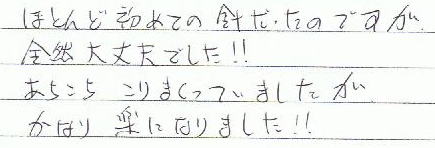 ほとんど初めての針だったのですが
全然大丈夫でした!!
あちこちこりまくっていましたが
かなり楽になりました!!